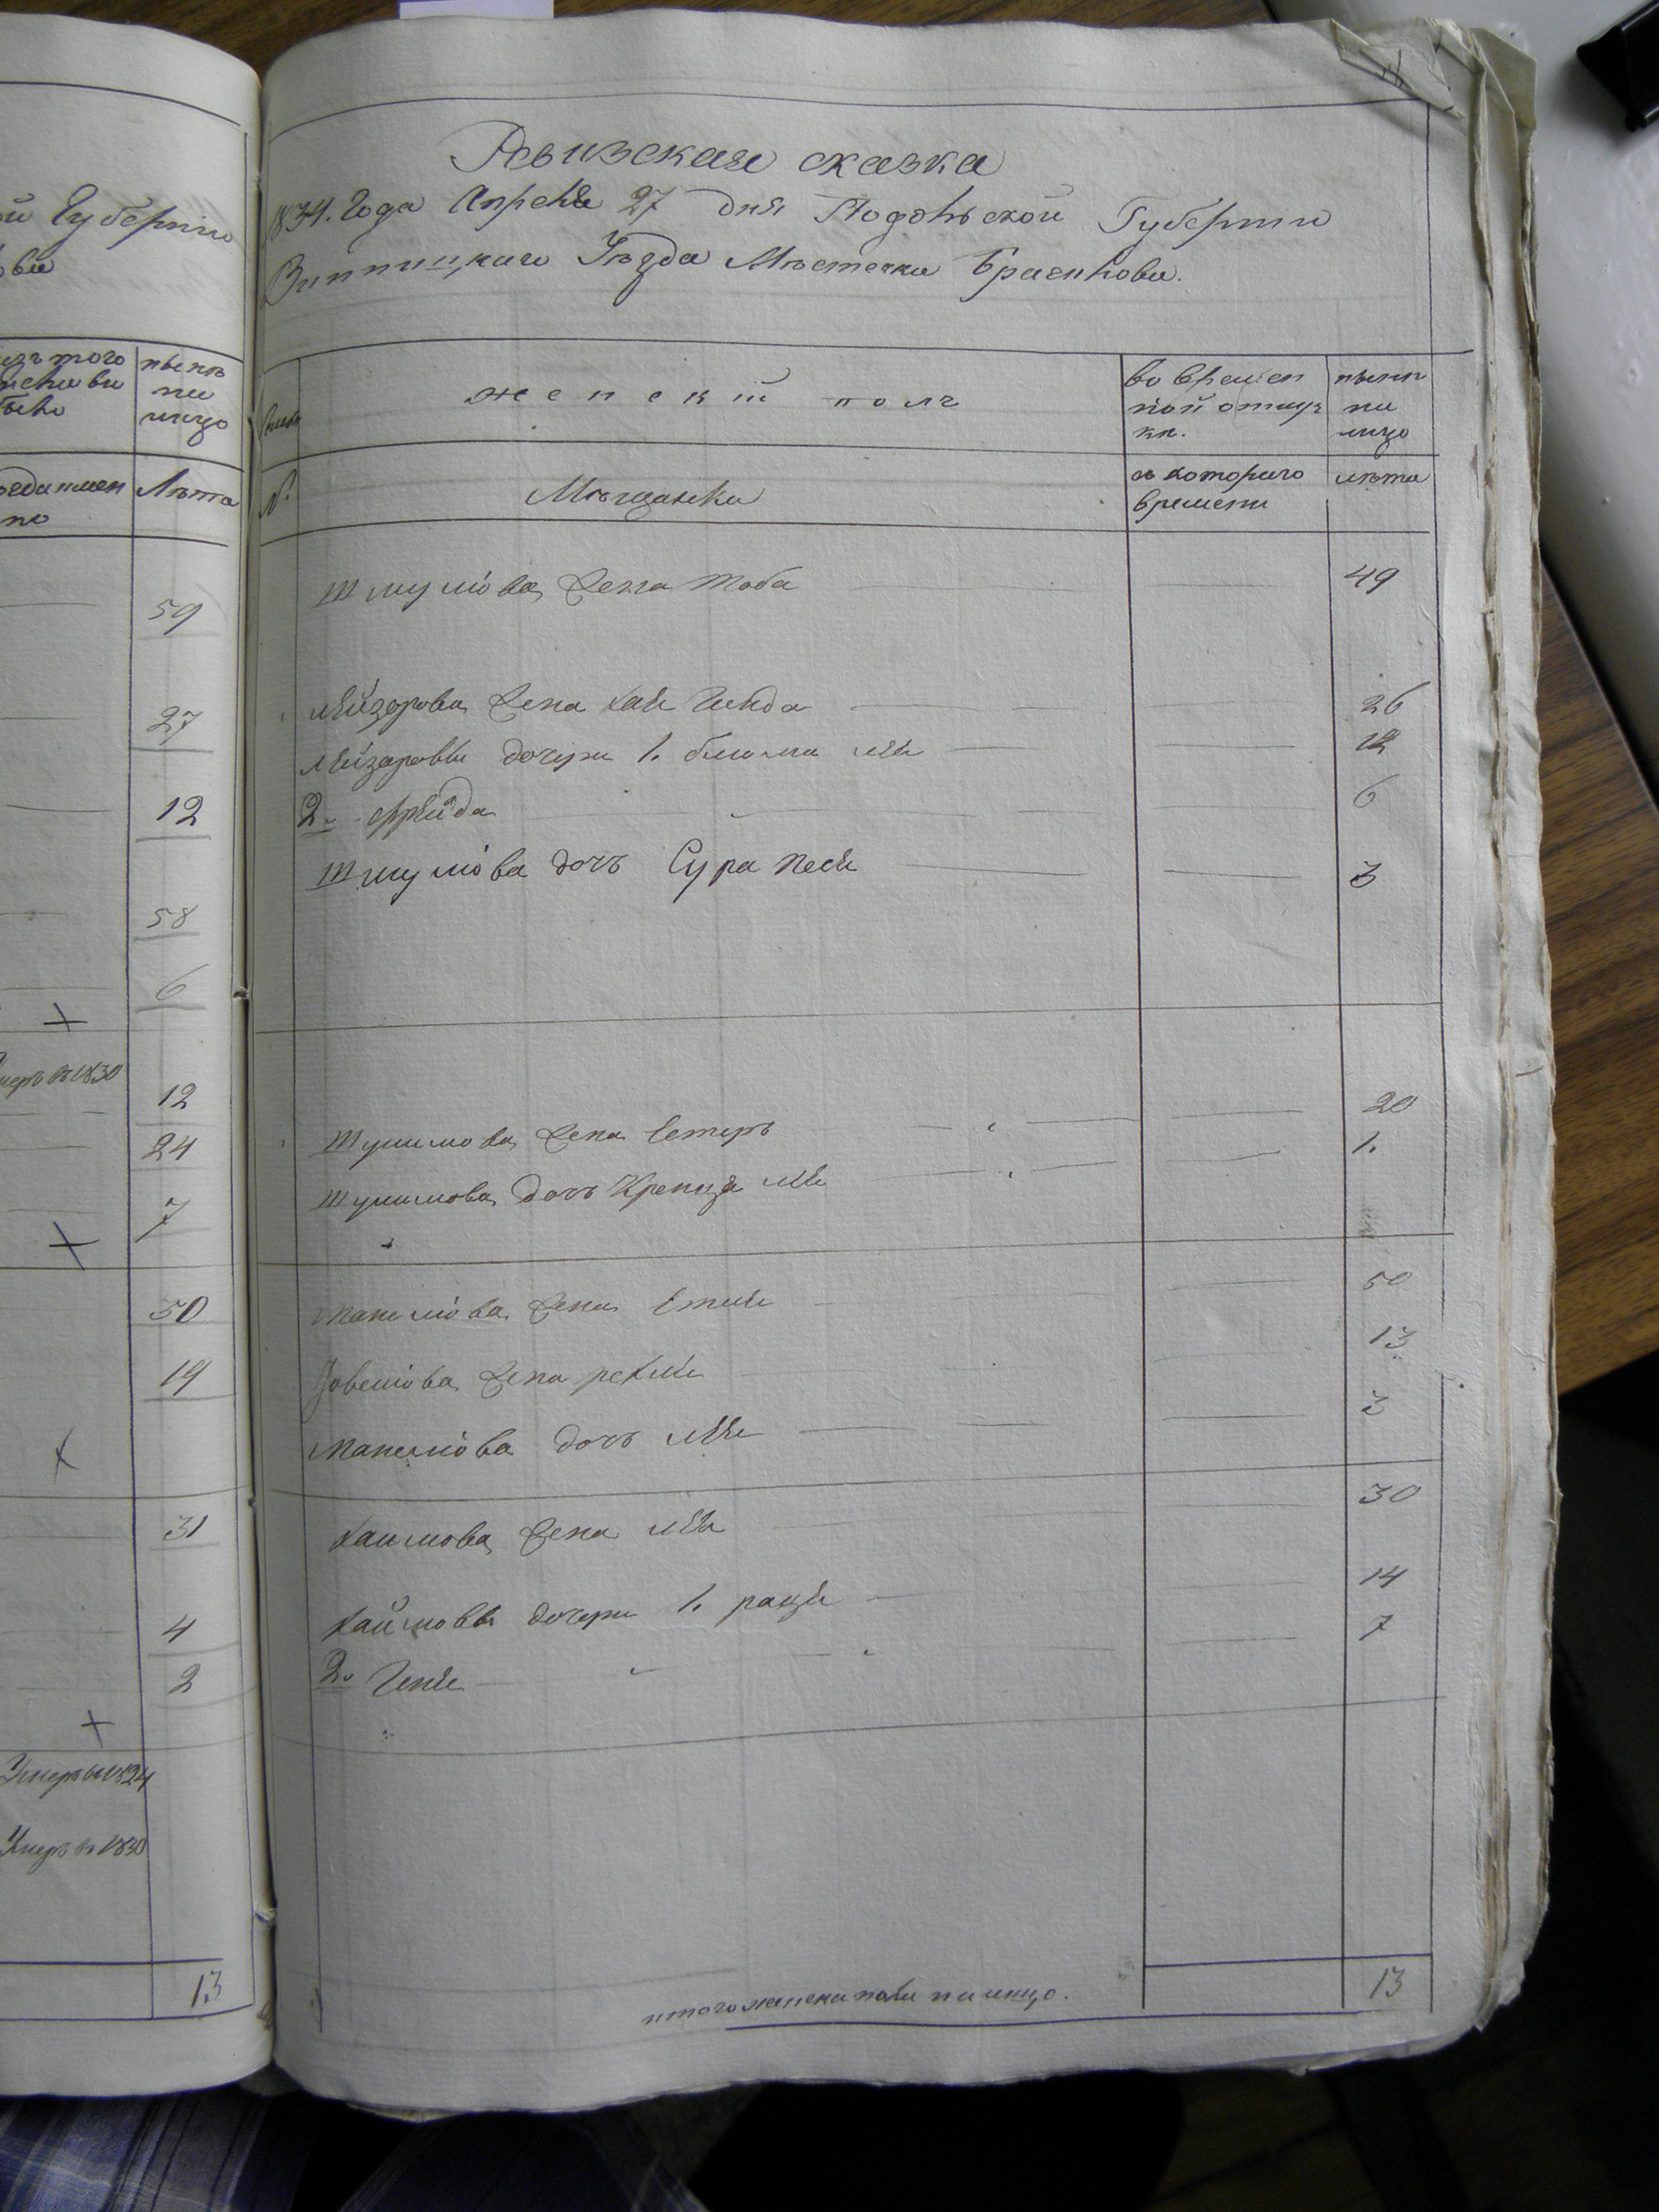 ой Губерніи
ва
изъ того
числа вы
было
нынѣ
на
лицо
Лѣта
59
27
12
58
6
умеръ въ 1830
12
24
7
50
19
31
4
2
Умеръ въ 1824
Умеръ въ 1830
13
Ревизская сказка
1834. Года Апреля 27 дня Подольской Губерніи
Винницкаго Уѣзда Мѣстечка Браилова.
женскій полъ
во времен
ной отлуч
кѣ.
нынѣ
на
лицо
№
Мѣщанки
съ котораго
времени
лѣта
Шмулiова жена Тоба 49
Лейзорова жена Хая Гинда 26
Лейзоровы дочери 1. Блима Лея 12
2. Фрейда 6
Шмулiова дочь Сура Песя 3
Шулимова жена Естеръ 20
Шулимова дочь Кренця Лея 1.
Манелiова жена Етля 50
жена Рехля 13
Манелiова дочь Лея 3
Хаимова жена Лея 30
Хаймовы дочери 1. Раця 14
2. Геня 7
итого женска пола на лицо. 13